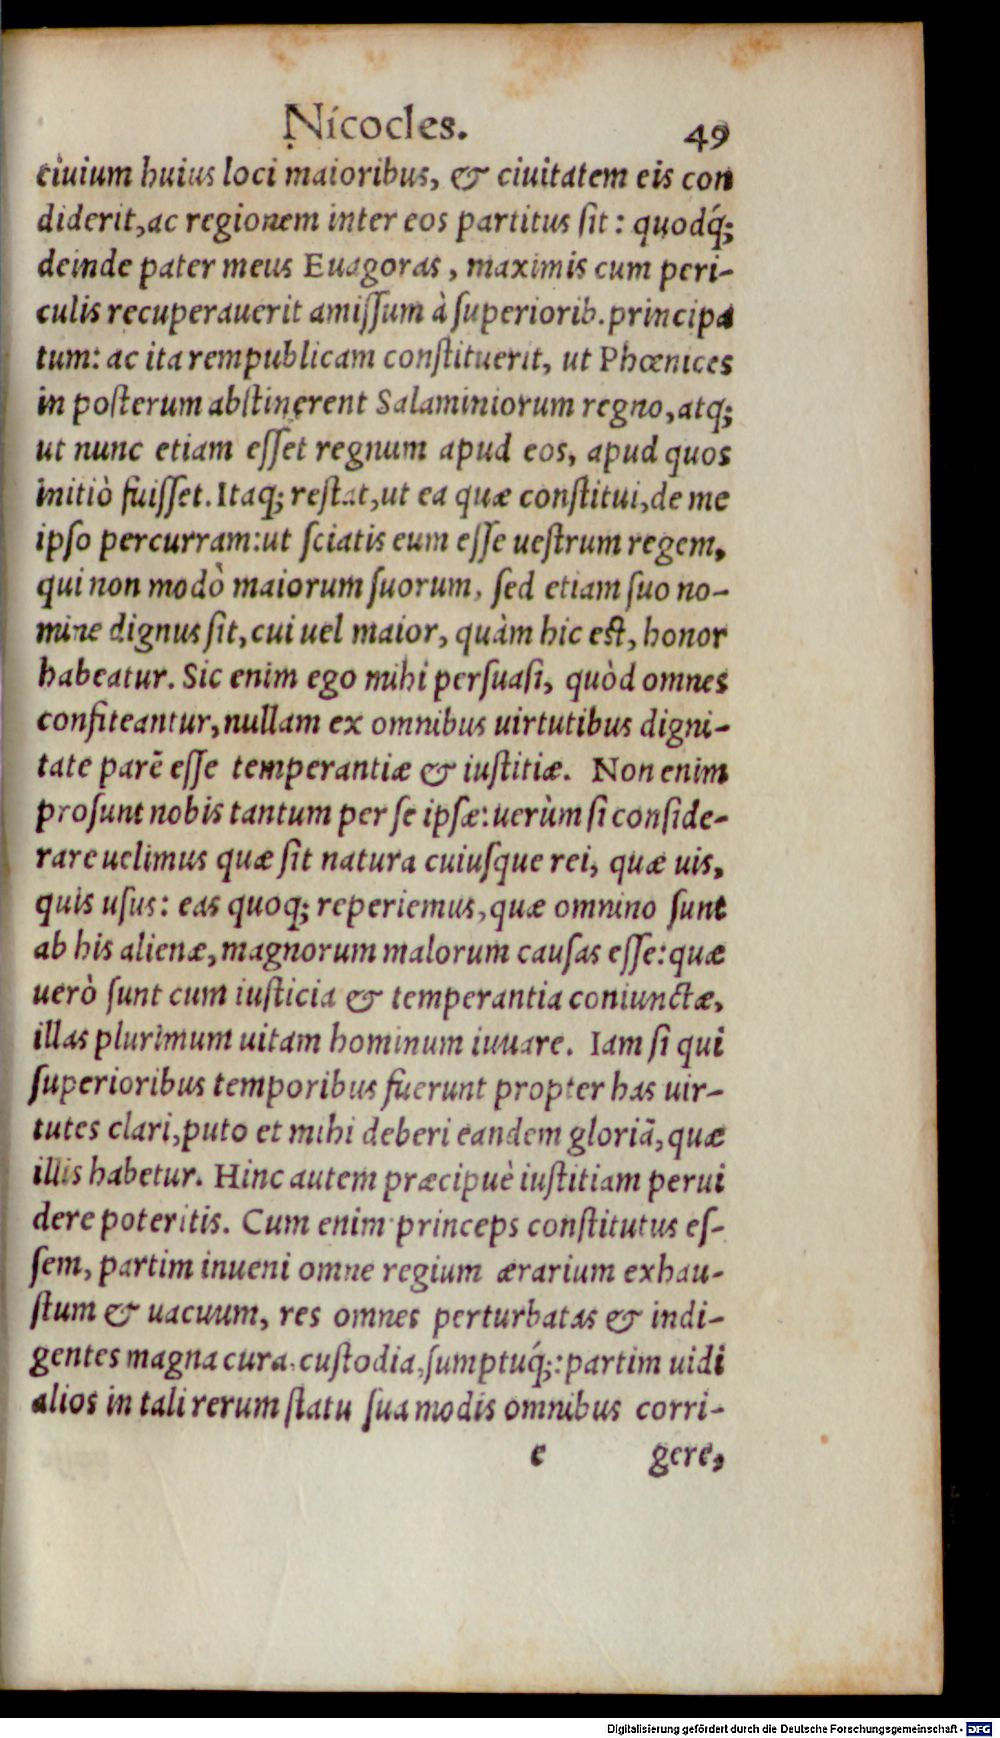 Nicocles. 49
ciuium huius loci maioribus, & ciuitatem eis con
diderit, ac regionem inter eos partitus sit: quodq́;
deinde pater meus Euagoras, maximis cum peri-
culis recuperauerit amiſſum à ſuperiorib. principa
tum: ac ita rempublicam conſtituerit, ut Phœnices
in poſterum abſtinerent Salaminiorum regno, atq;
ut nunc etiam eſſet regnum apud eos, apud quos
initiò fuiſſet. Itaq; reſtat, ut ea quæ conſtitui, de me
ipſo percurram: ut ſciatis eum eſſe ueſtrum regem,
qui non modò maiorum ſuorum, ſed etiam ſuo no-
mine dignus ſit, cui uel maior, quàm hic eſt, honor
habeatur. Sic enim ego mihi perſuaſi, quòd omnes
confiteantur, nullam ex omnibus uirtutibus digni-
tate parē eſſe temperantiæ & iuſtitiæ. Non enim
proſunt nobis tantum per ſe ipſæ: uerùm ſi conſide-
rare uelimus quæ ſit natura cuiuſque rei, quæ uis,
quis uſus: eas quoq; reperiemus, quæ omnino ſunt
ab his alienæ, magnorum malorum cauſas eſſe: quæ
uerò ſunt cum iuſticia & temperantia coniunctæ,
illas plurimum uitam hominum iuuare. Iam ſi qui
ſuperioribus temporibus fuerunt propter has uir-
tutes clari, puto et mihi deberi eandem gloriā, quæ
illis habetur. Hinc autem præcipuè iuſtitiam perui
dere poteritis. Cum enim princeps conſtitutus eſ-
ſem, partim inueni omne regium ærarium exhau-
ſtum & uacuum, res omnes perturbatas & indi-
gentes magna cura, cuſtodia, ſumptuq́;: partim uidi
alios in tali rerum ſtatu ſua modis omnibus corri-
e gere,
Digitalisierung gefördert durch die Deutsche Forschungsgemeinschaft - DFG